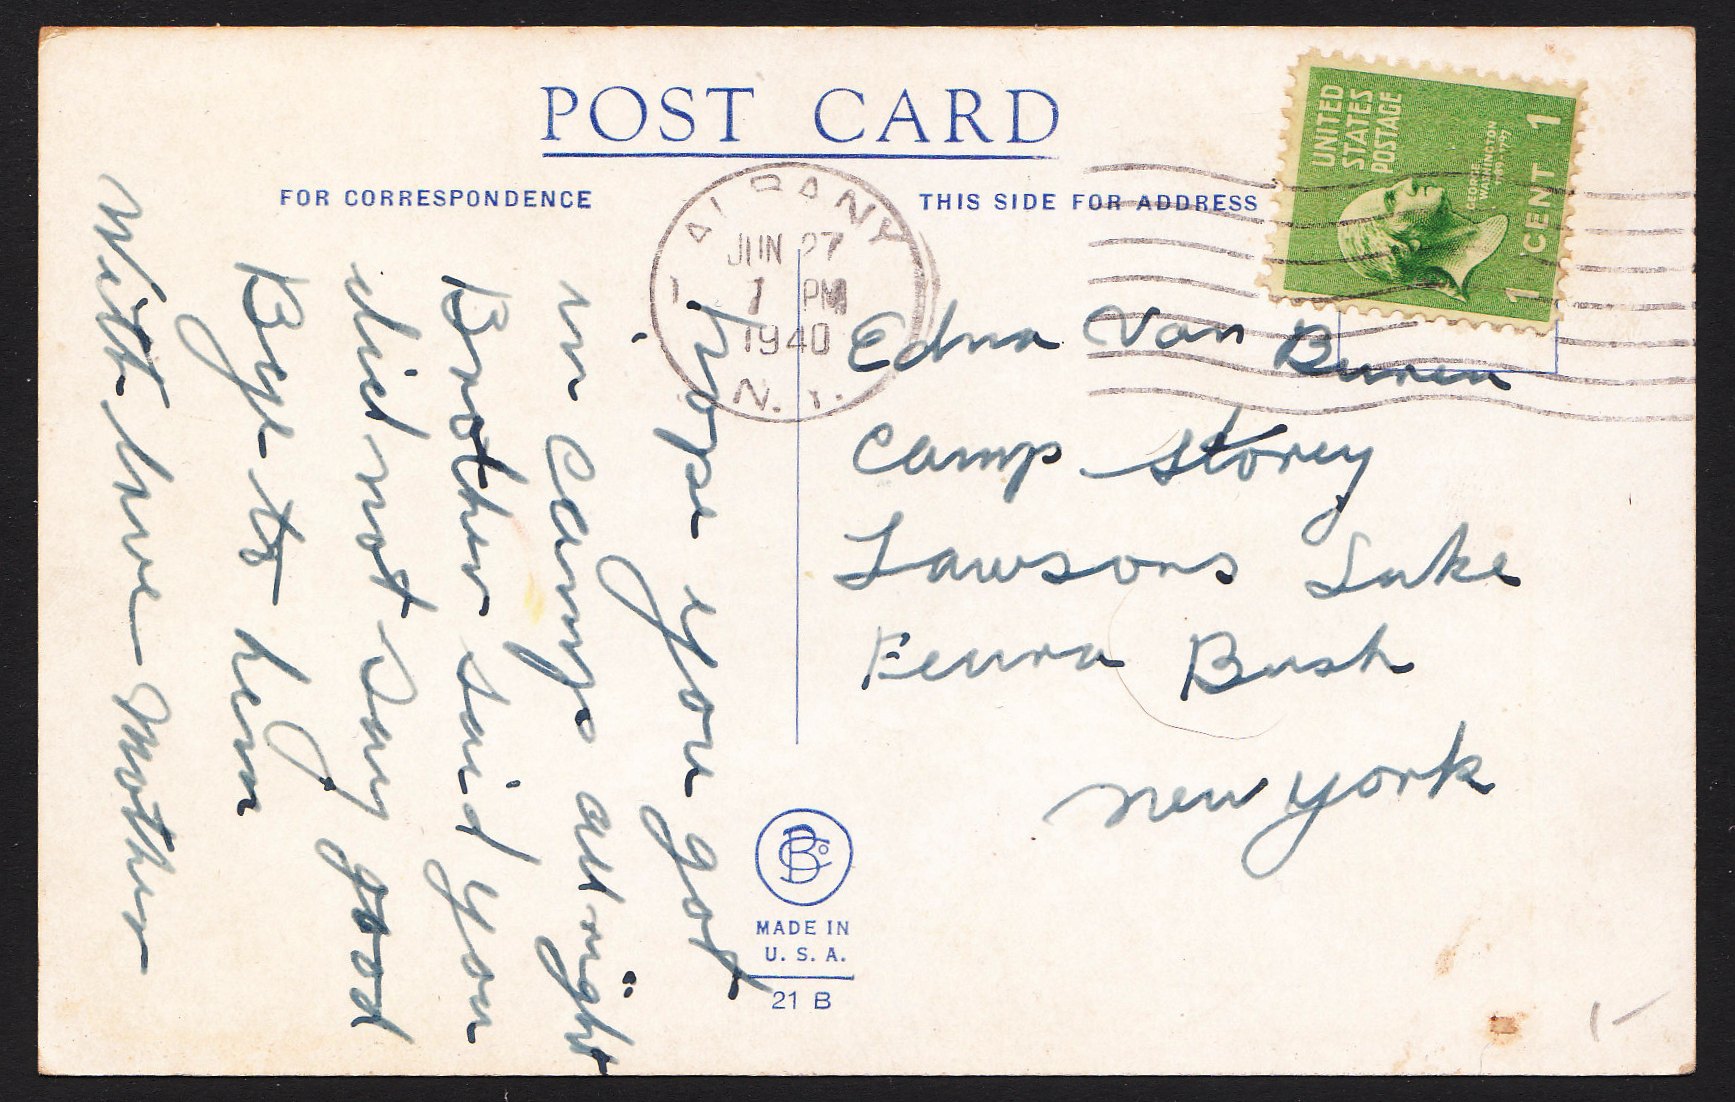 POST CARD
FOR CORRESPONDENCE
THIS SIDE FOR ADDRESS
ALBANY
JUN 27
1 PM
1940
N.Y.
UNITED
STATES
POSTAGE
GEORGE
WASHINGTON
1789-1797
1 CENT 1
hope you got
in camp all right
Brother said you
did not say good
Bye to him
With love Mother
Edna Van Buren
Camp Storey
Lawsons Lake
Feura Bush
New York
MADE IN
U. S. A.
21 B